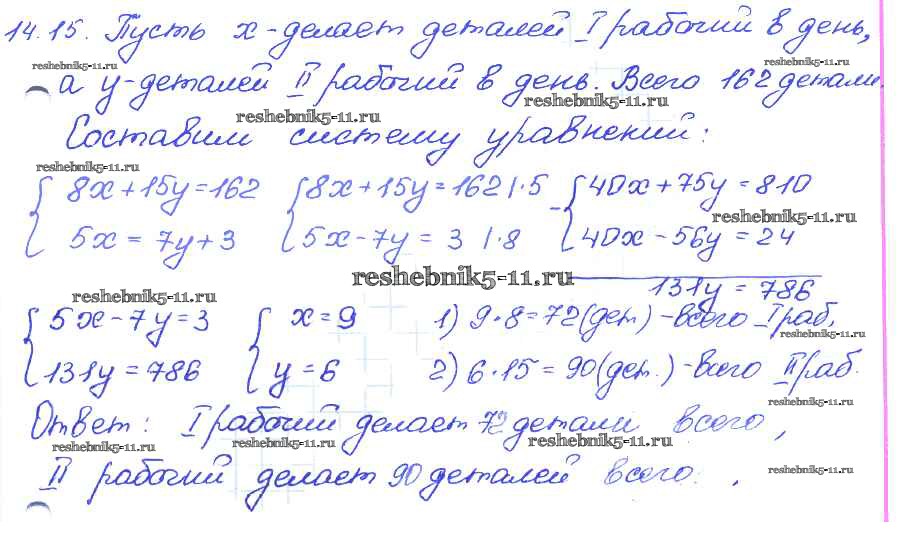 14.15. Пусть x-делает деталей I рабочий в день,
reshebnik5-11.ru
а y-деталей II рабочий в день. Всего 162 детали.
reshebnik5-11.ru reshebnik5-11.ru
Составим систему уравнений:
reshebnik5-11.ru
{ 8x+15y=162 { 8x+15y=162 |·5 - { 40x+75y=810
reshebnik5-11.ru
5x=7y+3 5x-7y=3 |·8 40x-56y=24
reshebnik5-11.ru
131y=786
reshebnik5-11.ru
{ 5x-7y=3 { x=9 1) 9·8=72(дет) -всего I раб,
reshebnik5-11.ru
131y=786 y=6 2) 6·15=90(дет.) -всего II раб.
reshebnik5-11.ru
Ответ: I рабочий делает 72 детали всего,
reshebnik5-11.ru reshebnik5-11.ru reshebnik5-11.ru
II рабочий делает 90 деталей всего.,
reshebnik5-11.ru